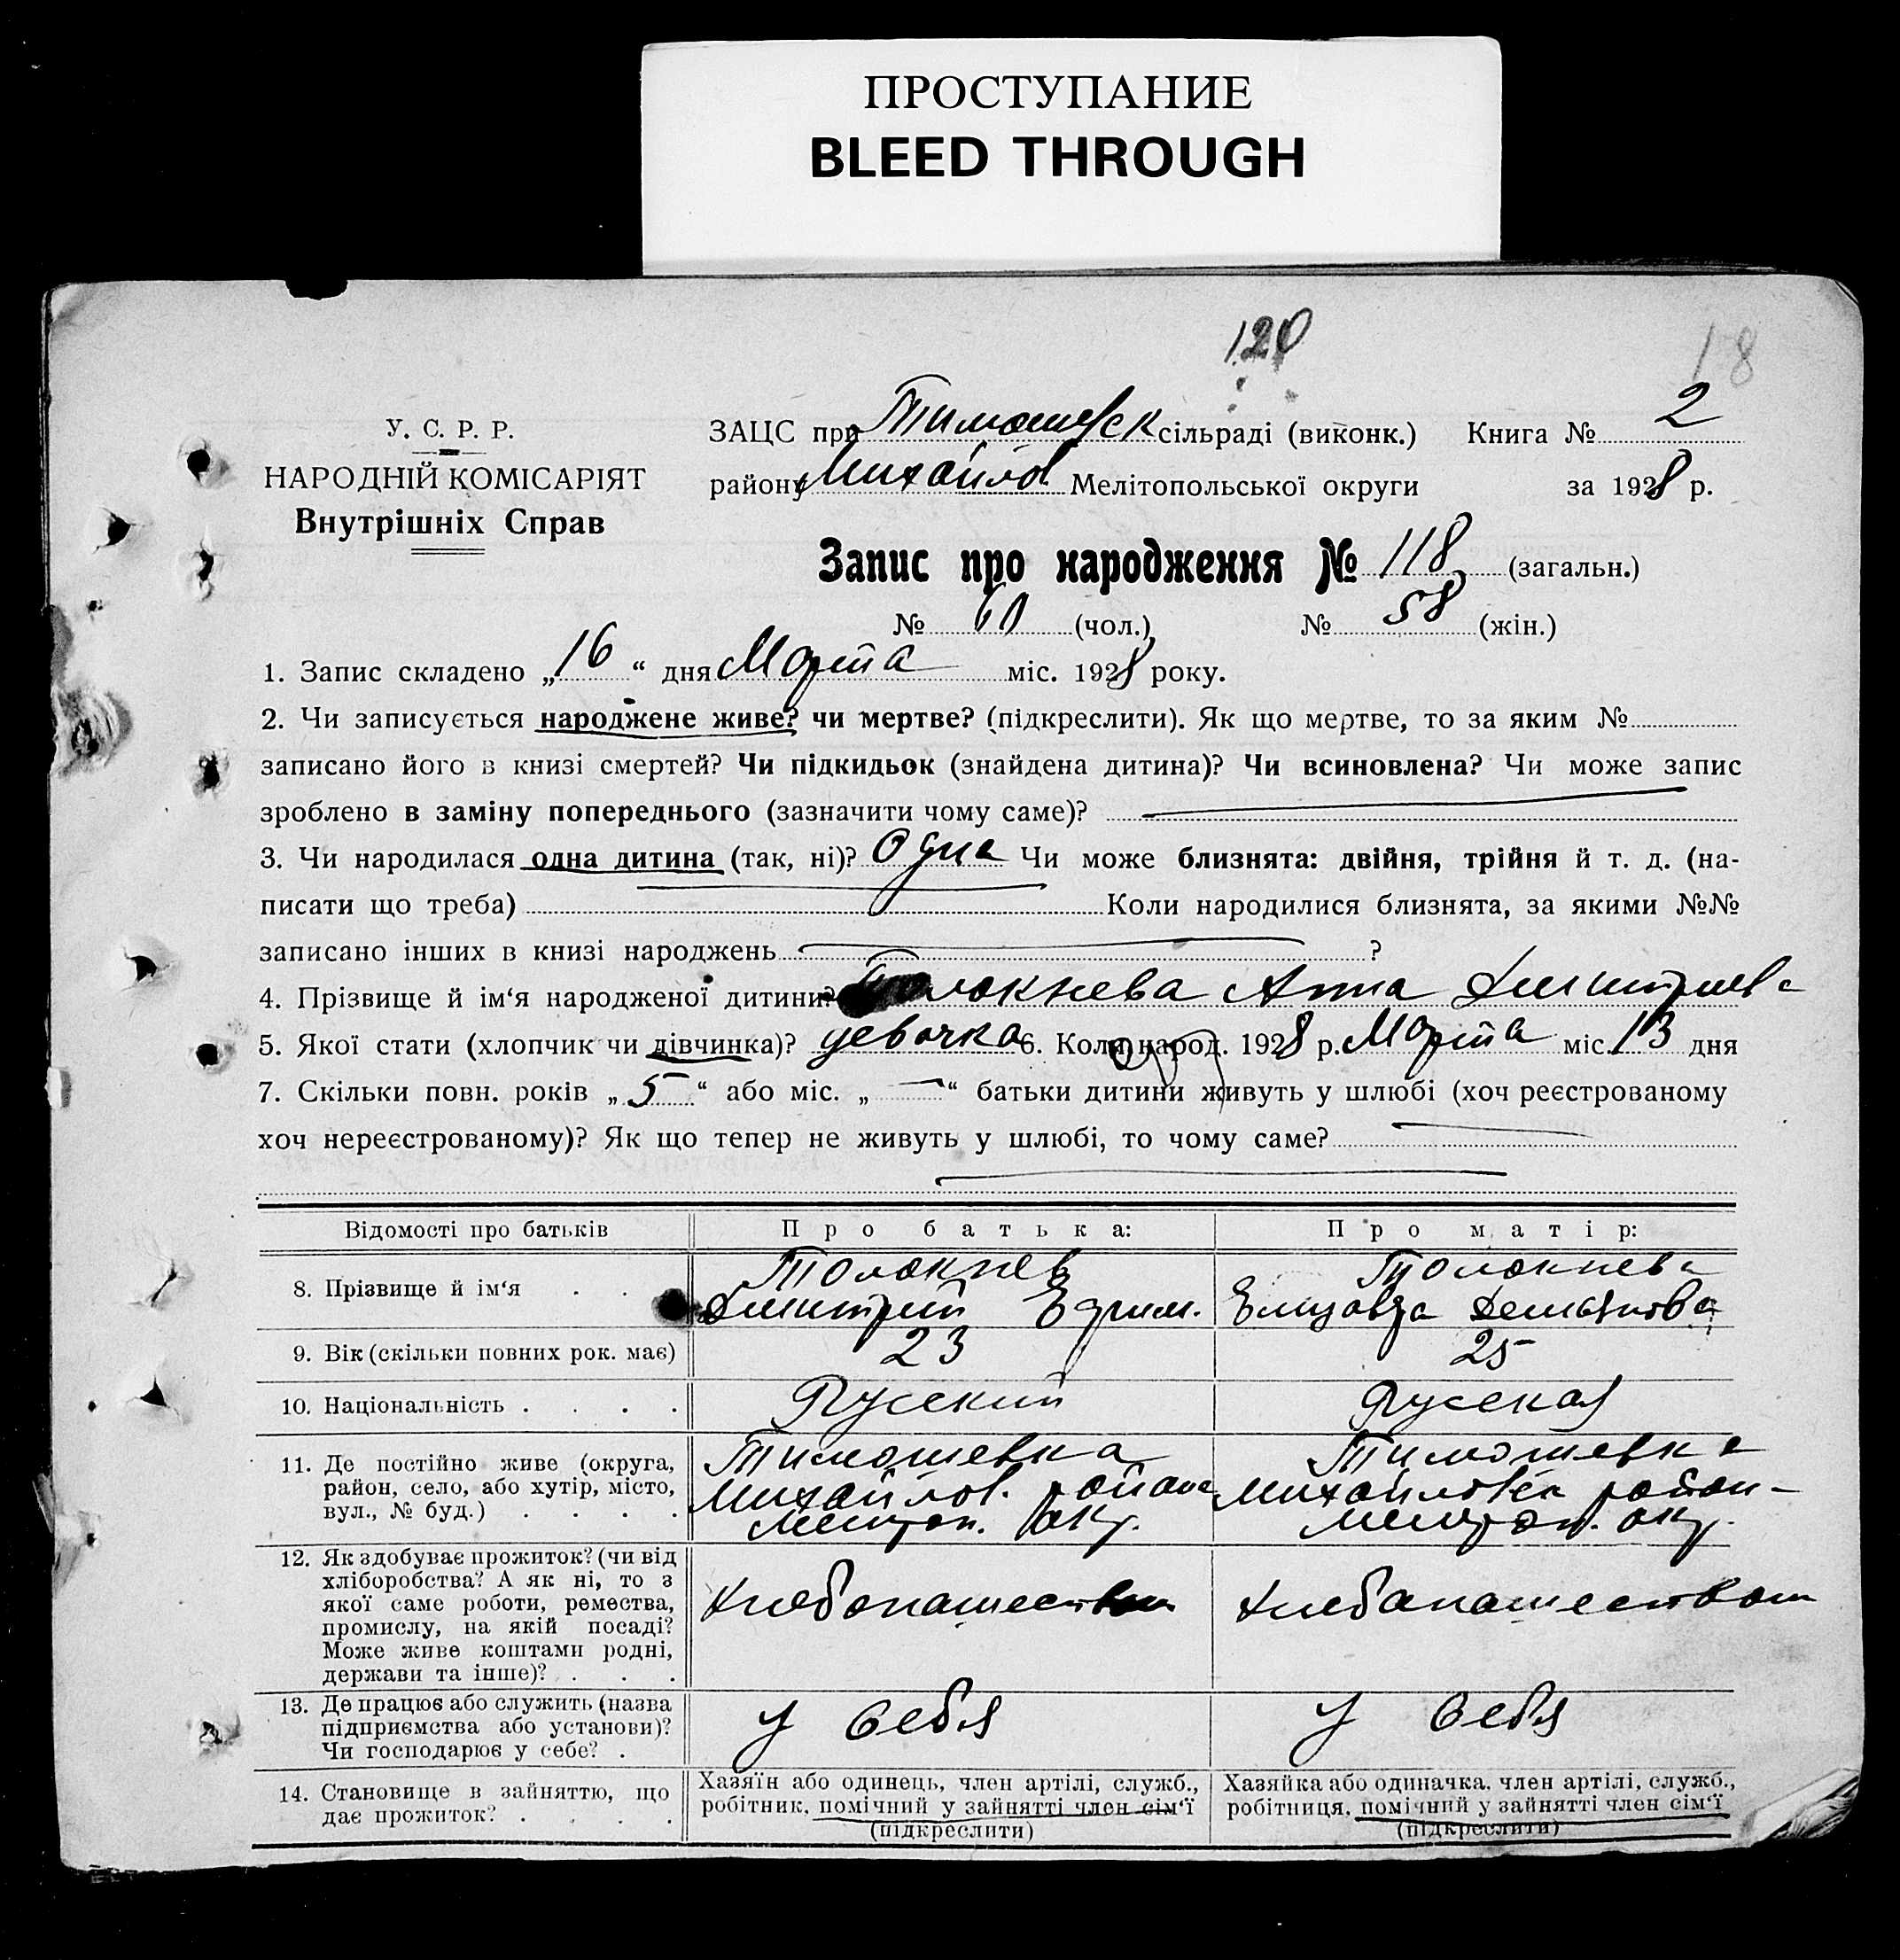 ПРОСТУПАНИЕ
BLEED THROUGH
120
18
У. С. Р. Р.
НАРОДНІЙ КОМІСАРІЯТ
Внутрішніх Справ
ЗАЦС при Тимошевск сільраді (виконк.) Книга № 2
району Михайлов Мелітопольської округи за 1928 р.
Запис про народження № 118 (загальн.)
№ 60 (чол.) № 58 (жін.)
1. Запис складено „16“ дня Марта міс. 1928 року.
2. Чи записується народжене живе? чи мертве? (підкреслити). Як що мертве, то за яким №
записано його в книзі смертей? Чи підкидьок (знайдена дитина)? Чи всиновлена? Чи може запис
зроблено в заміну попереднього (зазначити чому саме)?
3. Чи народилася одна дитина (так, ні)? Одна Чи може близнята: двійня, трійня й т. д. (на-
писати що треба) Коли народилися близнята, за якими №№
записано інших в книзі народжень ?
4. Прізвище й ім‘я народженої дитини? Толокнева Анна Дмитриев
5. Якої стати (хлопчик чи дівчинка)? девочка 6. Коли народ. 1928 р. Марта міс. 13 дня
7. Скільки повн. років „5“ або міс. „—“ батьки дитини живуть у шлюбі (хоч реєстрованому
хоч нереєстрованому)? Як що тепер не живуть у шлюбі, то чому саме?
Відомості про батьків Про батька: Про матір:
8. Прізвище й ім‘я Толокнев Дмитрий Ефим. Толокнева Елизавета Демьянова
9. Вік (скільки повних рок. має) 23 25
10. Національність Русский Русская
11. Де постійно живе (округа,
район, село, або хутір, місто,
вул., № буд.)
Тимошевка
Михайлов. района
Мелитоп. окр.
Тимошевка
Михайловск район
Мелитоп. окр.
12. Як здобуває прожиток? (чи від
хліборобства? А як ні, то з
якої саме роботи, ремества,
промислу, на якій посаді?
Може живе коштами родні,
держави та інше)?
Хлебопашеством
Хлебапашеством
13. Де працює або служить (назва
підприємства або установи)?
Чи господарює у себе?
У себя
У себя
14. Становище в зайняттю, що
дає прожиток?
Хазяїн або одинець, член артілі, служб.,
робітник, помічний у зайнятті член сім‘ї
(підкреслити)
Хазяйка або одиначка, член артілі, служб.,
робітниця, помічний у зайнятті член сім‘ї
(підкреслити)